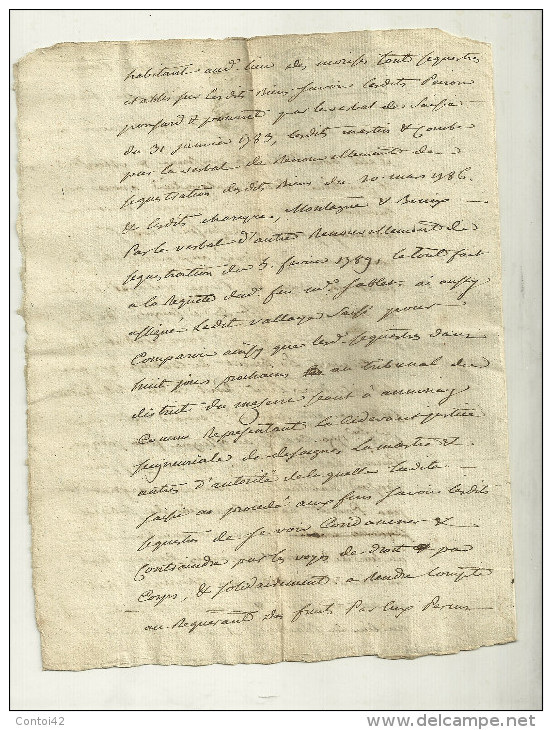 habitants aud. lieu des tous sequestres
etablis sur lesdits Biens savoir lesdits
ponsard & par le verbal de saisie
du 31 janvier 1783, lesdits & Combe
par le verbal de Renouvellement de
sequestration desdits Biens du 20 mars 1786
& lesdits chareyre, Montagne &
Par le verbal d'autre Renouvellement de
sequestration du 5 fevrier 1789, le tout fait
a la Requete dud. feu ai aussy
assigné Ledit saisi pour
Comparoir aussy que lesd. sequestres dans
huit jours prochains au tribunal de
district du mezenc seant à annonay
Comme Representant la cidevant justice
seigneuriale de desaignes Lamastre et
autres d'autorité de laquelle ladite
saisie a procedé aux fins savoir lesdits
sequestres de se voir Condamner &
Contraindre par les voyes de droit & par
Corps, & solidairement a Rendre Compte
au Requerant des fruits Par eux Percus
Contoi42
www.delcampe.net